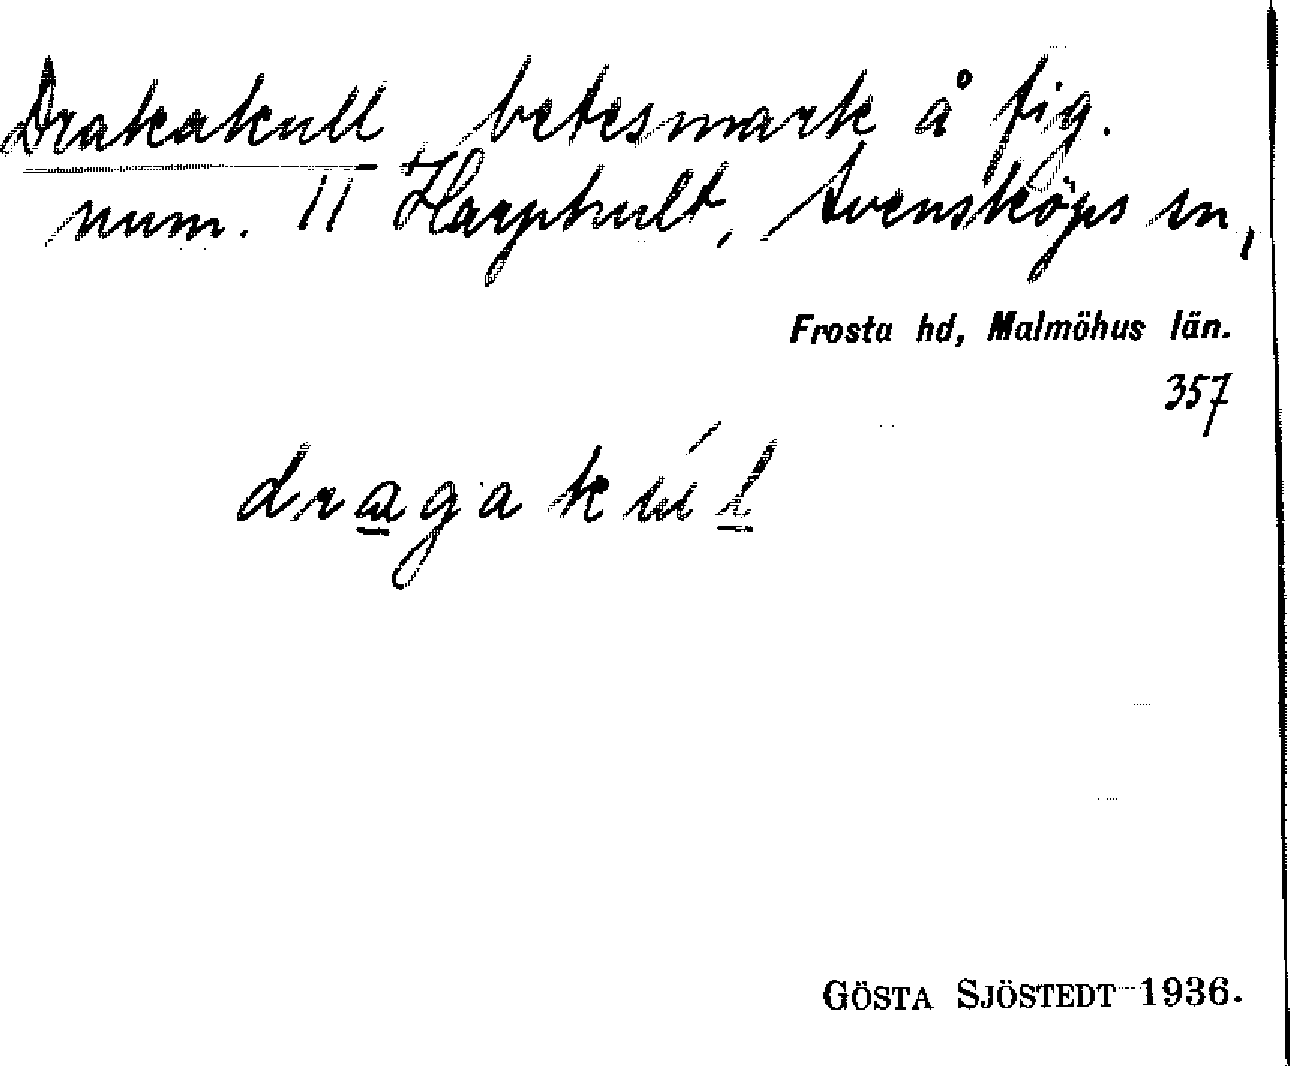 Drakakull betesmark å fig.
num. 11 Harphult, Svensköps sn,
Frosta hd, Malmöhus län.
357
dragakúl
GÖSTA SJÖSTEDT 1936.